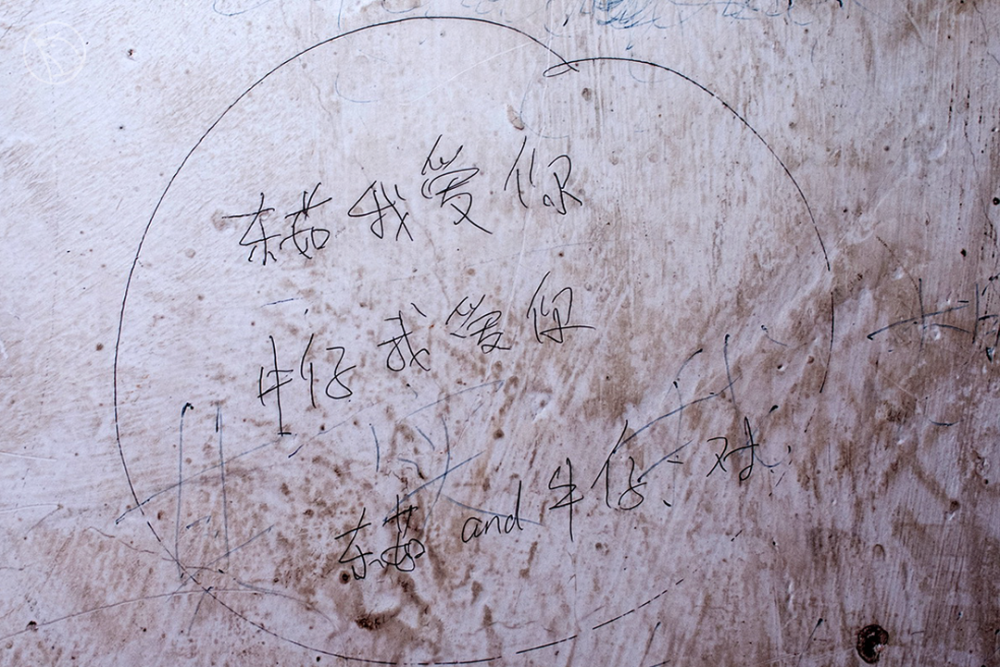 东茹我爱你
牛仔我爱你
东茹 and 牛仔、对、